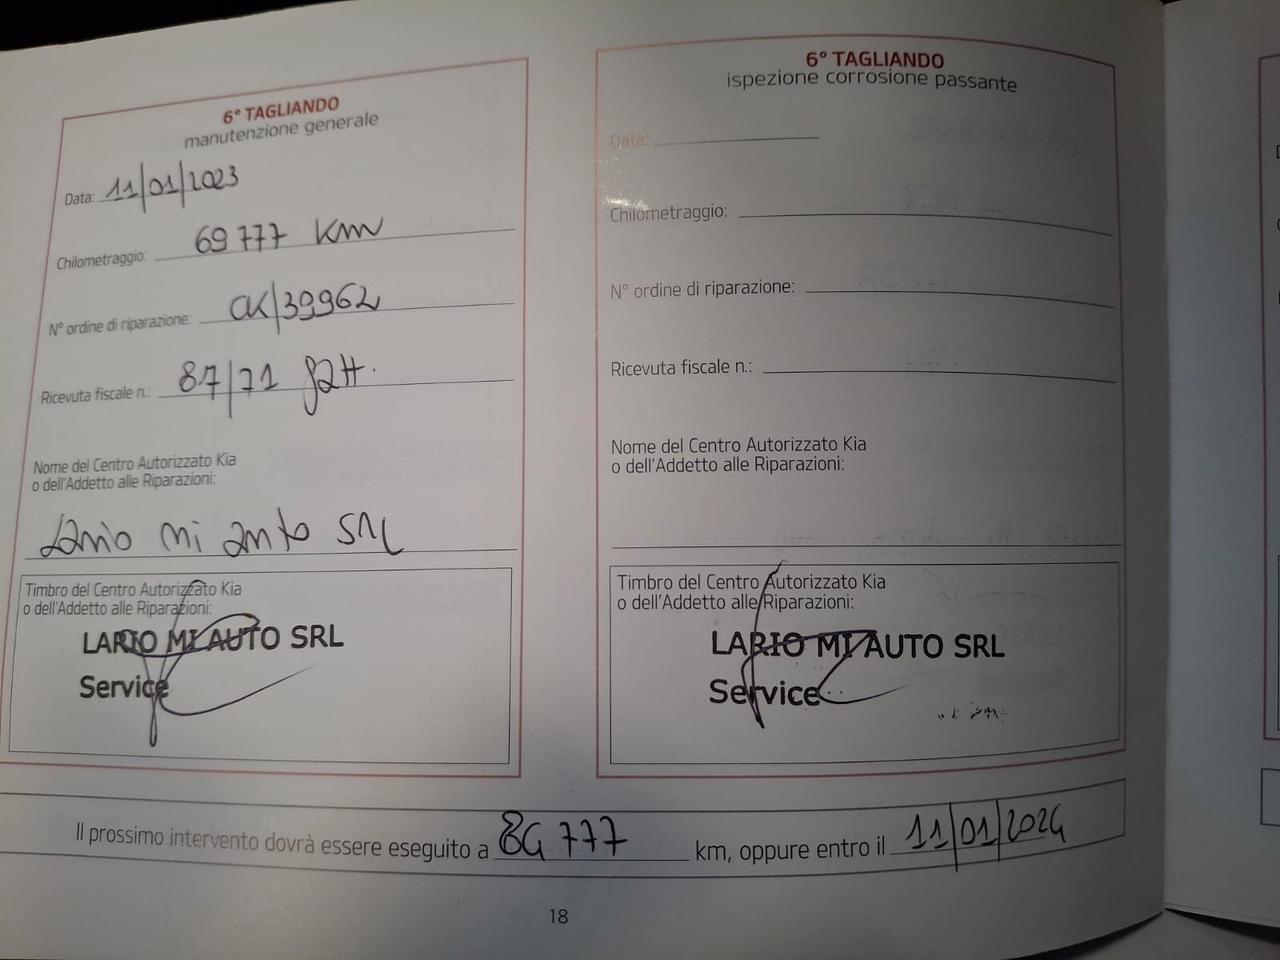 6° TAGLIANDO
manutenzione generale
Data: 11/01/2023
Chilometraggio: 69777 Km
N° ordine di riparazione: CK/39962
Ricevuta fiscale n.: 87/71
Nome del Centro Autorizzato Kia
o dell'Addetto alle Riparazioni:
Lario mi auto SRL
Timbro del Centro Autorizzato Kia
o dell'Addetto alle Riparazioni:
LARIO MI AUTO SRL
Service
6° TAGLIANDO
ispezione corrosione passante
Data:
Chilometraggio:
N° ordine di riparazione:
Ricevuta fiscale n.:
Nome del Centro Autorizzato Kia
o dell'Addetto alle Riparazioni:
Timbro del Centro Autorizzato Kia
o dell'Addetto alle Riparazioni:
LARIO MI AUTO SRL
Service
Il prossimo intervento dovrà essere eseguito a 84777 km, oppure entro il 11/01/2024
18